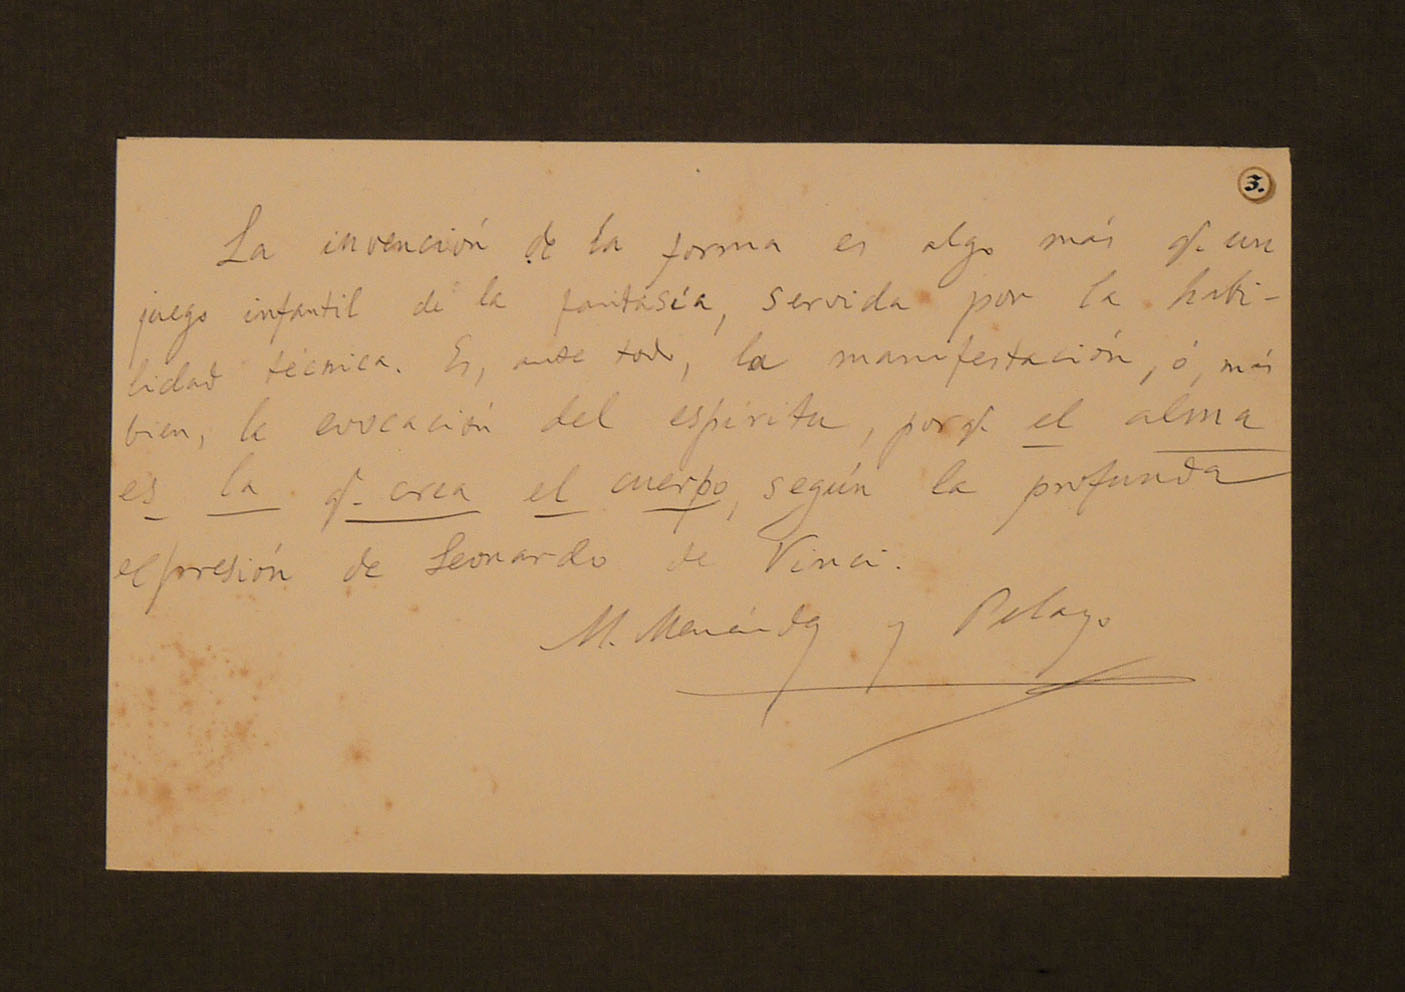 3.
La invención de la forma es algo más q. un
juego infantil de la fantasía, servida por la habi-
lidad técnica. Es, ante todo, la manifestación, ó, más
bien, la evocación del espíritu, porq. el alma
es la q. crea el cuerpo, según la profunda
espresión de Leonardo de Vinci.
M. Menéndez y Pelayo